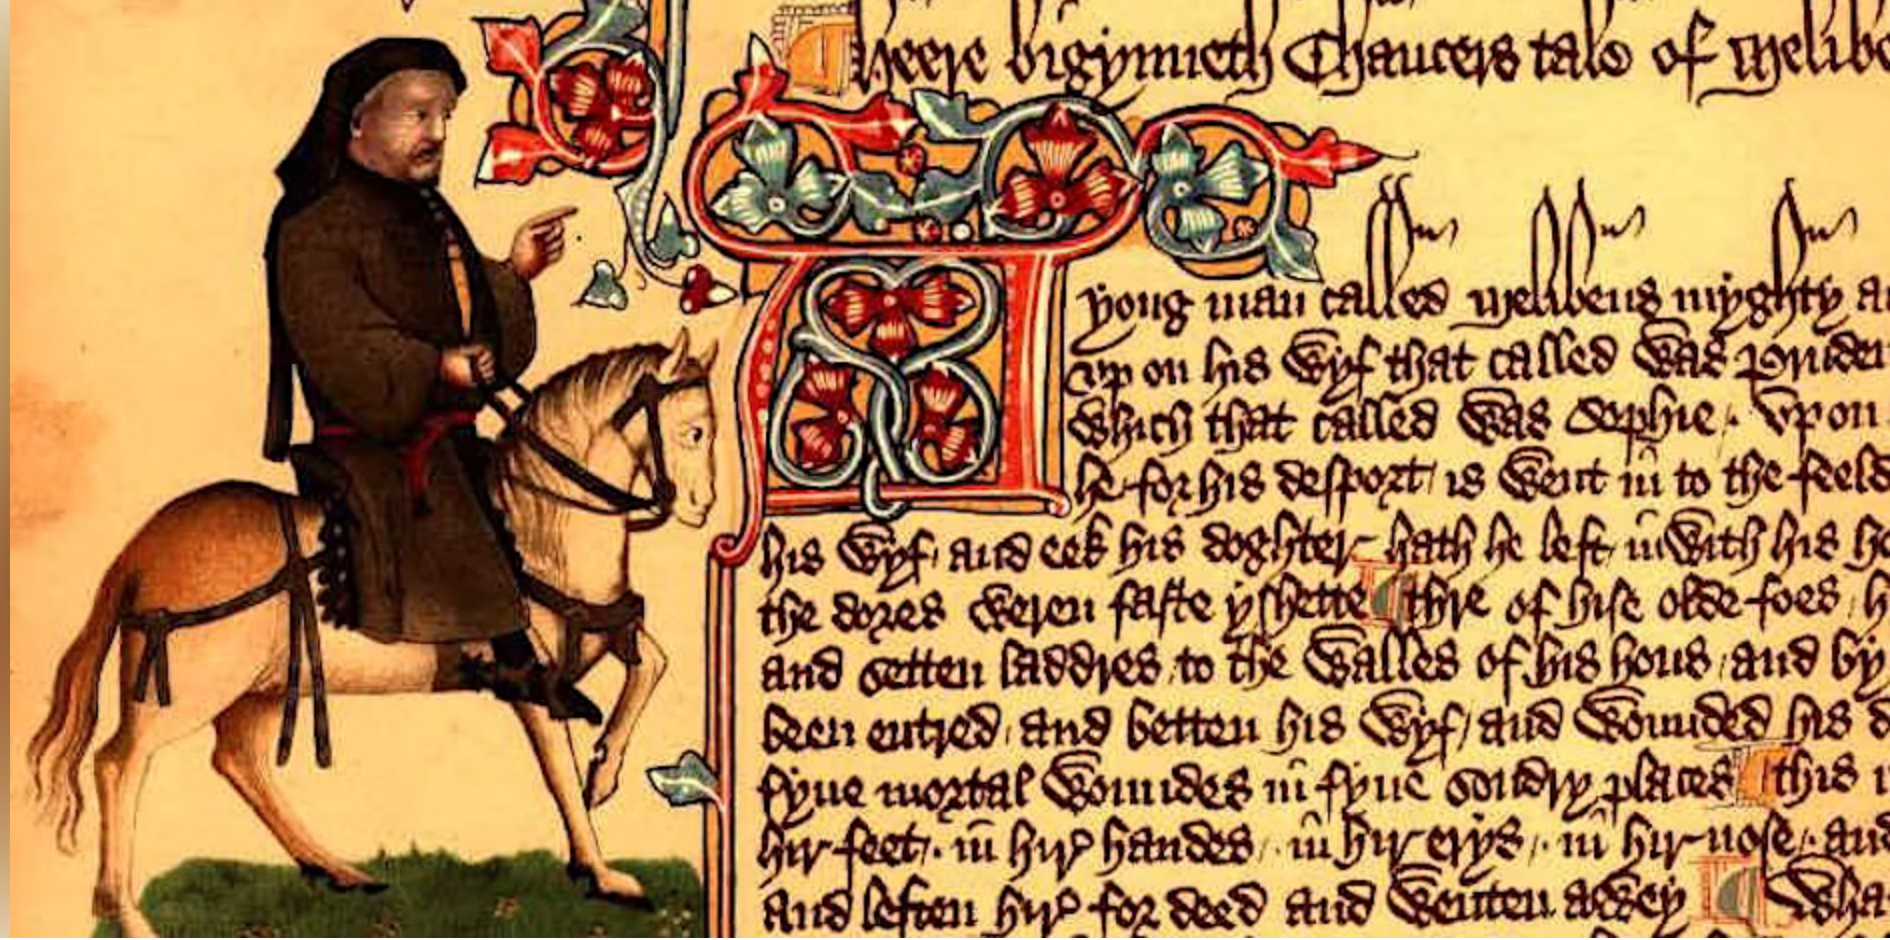 Heere bigynneth Chaucers tale of Melibe
A
yong man called Melibeus myghty a
vp on his wyf that called was Pruden
which that called was Sophie . Vpon
he for his desport / is went in to the feeld
his wyf / and eek his doghter hath he left inwith his ho
the dores weren faste yshette thre of hise olde foes h
and setten laddres to the walles of his hous / and by
been entred / and betten his wyf / and wounded his d
fyue mortal woundes in fyue sondry places this
hir feet / in hir handes / in hir erys / in hir nose / and
and leften hir for deed and wenten awey Wha